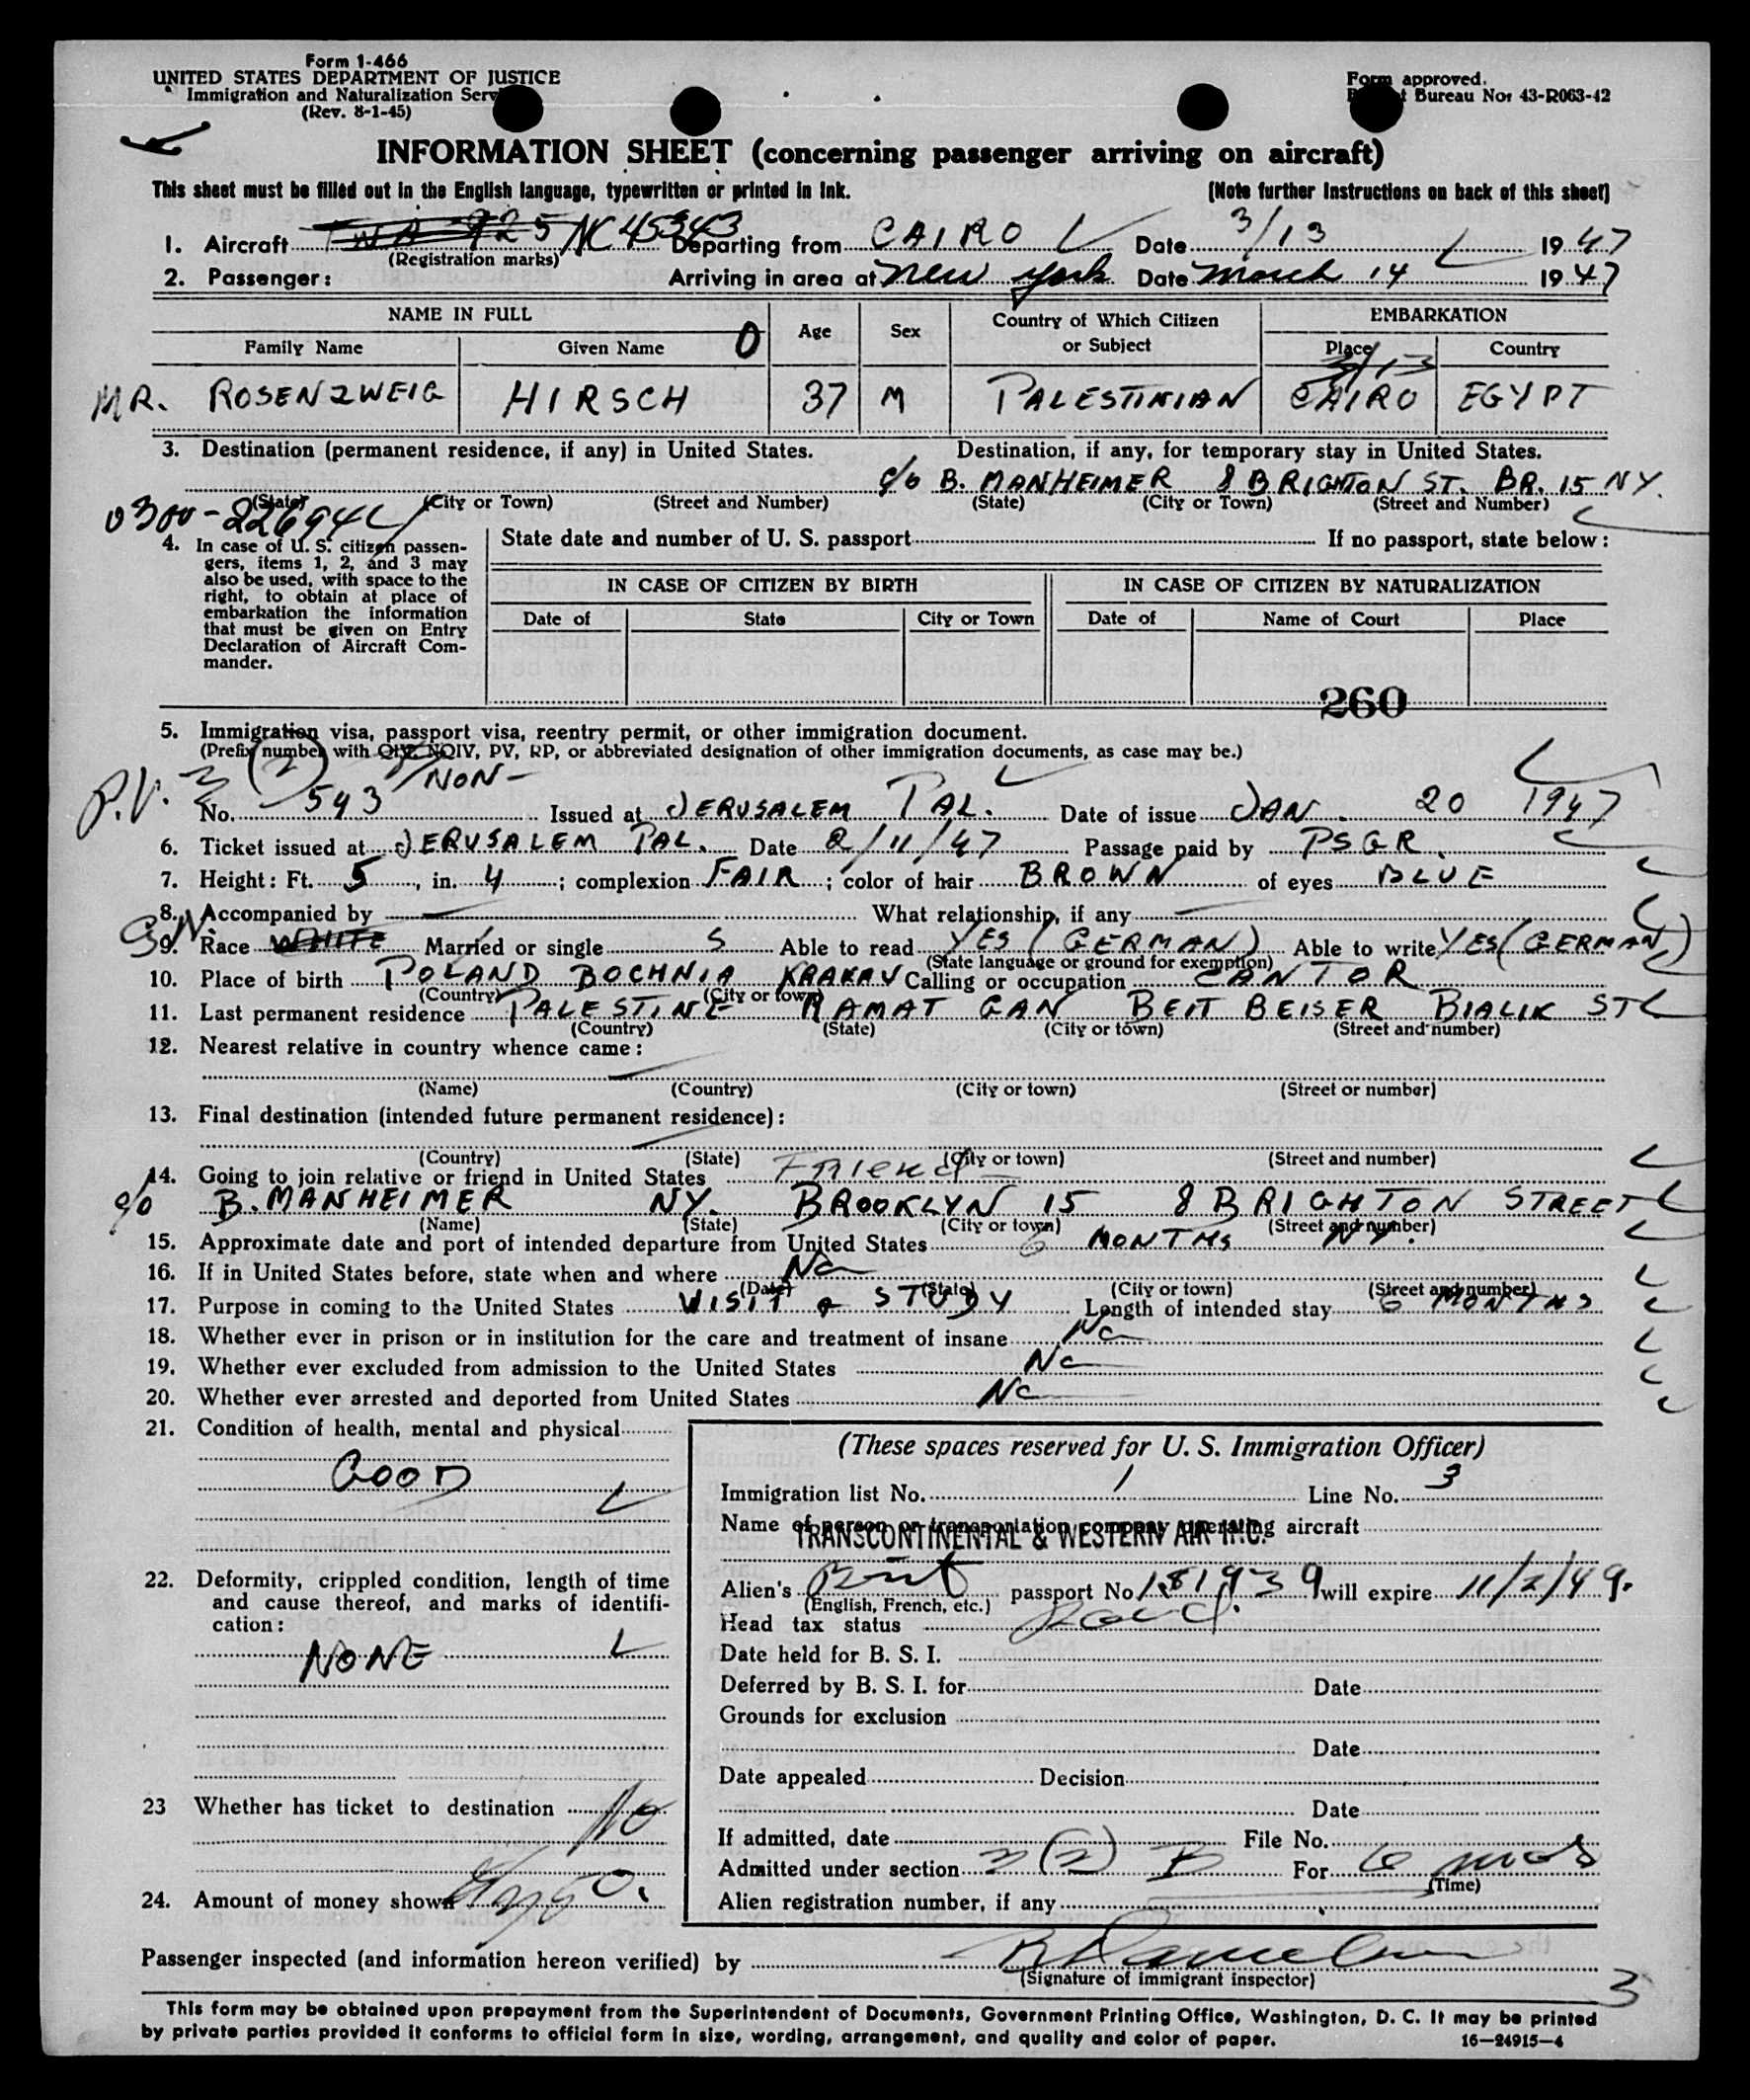 Form 1-466
UNITED STATES DEPARTMENT OF JUSTICE
Immigration and Naturalization Serv
(Rev. 8-1-45)
Form approved.
Bureau No. 43-R063-42
INFORMATION SHEET (concerning passenger arriving on aircraft)
This sheet must be filled out in the English language, typewritten or printed in ink.
(Note further instructions on back of this sheet)
1. Aircraft TWA 925 NC 45343 Departing from CAIRO Date 3/13 1947
(Registration marks)
2. Passenger: Arriving in area at New York Date March 14 1947
NAME IN FULL O Age Sex Country of Which Citizen or Subject EMBARKATION
Family Name Given Name Place Country
3/13
MR. ROSENZWEIG HIRSCH 37 M PALESTINIAN CAIRO EGYPT
3. Destination (permanent residence, if any) in United States. Destination, if any, for temporary stay in United States.
c/o B. MANHEIMER 8 BRIGHTON ST. BR. 15 NY.
(State) (City or Town) (Street and Number) (State) (City or Town) (Street and Number)
0300-22694
4. In case of U. S. citizen passengers, items 1, 2, and 3 may
also be used, with space to the
right, to obtain at place of
embarkation the information
that must be given on Entry
Declaration of Aircraft Commander.
State date and number of U. S. passport If no passport, state below:
IN CASE OF CITIZEN BY BIRTH IN CASE OF CITIZEN BY NATURALIZATION
Date of State City or Town Date of Name of Court Place
260
5. Immigration visa, passport visa, reentry permit, or other immigration document.
(Prefix number with QIV, NQIV, PV, RP, or abbreviated designation of other immigration documents, as case may be.)
P.V. 3 (2) NON-
No. 543 Issued at JERUSALEM PAL. Date of issue JAN. 20 1947
6. Ticket issued at JERUSALEM PAL. Date 2/11/47 Passage paid by PSGR.
7. Height: Ft. 5, in. 4; complexion FAIR; color of hair BROWN of eyes BLUE
8. Accompanied by — What relationship, if any —
9. Race WHITE Married or single S Able to read YES (GERMAN) Able to write YES (GERMAN)
(State language or ground for exemption)
10. Place of birth POLAND BOCHNIA KRAKAV Calling or occupation CANTOR
(Country) (City or town)
11. Last permanent residence PALESTINE RAMAT GAN BEIT BEISER BIALIK ST
(Country) (State) (City or town) (Street and number)
12. Nearest relative in country whence came:
(Name) (Country) (City or town) (Street or number)
13. Final destination (intended future permanent residence):
(Country) (State) (City or town) (Street and number)
14. Going to join relative or friend in United States Friend
c/o B. MANHEIMER NY. BROOKLYN 15 8 BRIGHTON STREET
(Name) (State) (City or town) (Street and number)
15. Approximate date and port of intended departure from United States 6 MONTHS NY.
16. If in United States before, state when and where No
(Date) (State) (City or town) (Street and number)
17. Purpose in coming to the United States VISIT & STUDY Length of intended stay 6 MONTHS
18. Whether ever in prison or in institution for the care and treatment of insane No
19. Whether ever excluded from admission to the United States No
20. Whether ever arrested and deported from United States No
21. Condition of health, mental and physical
GOOD
22. Deformity, crippled condition, length of time
and cause thereof, and marks of identification:
NONE
23 Whether has ticket to destination No
24. Amount of money shown
(These spaces reserved for U. S. Immigration Officer)
Immigration list No. 1 Line No. 3
Name of person or transportation company operating aircraft
TRANSCONTINENTAL & WESTERN AIR INC.
Alien's Brit passport No 181939 will expire 11/2/49.
(English, French, etc.)
Head tax status
Date held for B. S. I.
Deferred by B. S. I. for Date
Grounds for exclusion
Date
Date appealed Decision
Date
If admitted, date File No.
Admitted under section 3(2) B For 6 mos
(Time)
Alien registration number, if any
Passenger inspected (and information hereon verified) by
(Signature of immigrant inspector)
3
This form may be obtained upon prepayment from the Superintendent of Documents, Government Printing Office, Washington, D. C. It may be printed
by private parties provided it conforms to official form in size, wording, arrangement, and quality and color of paper. 16—24915-4